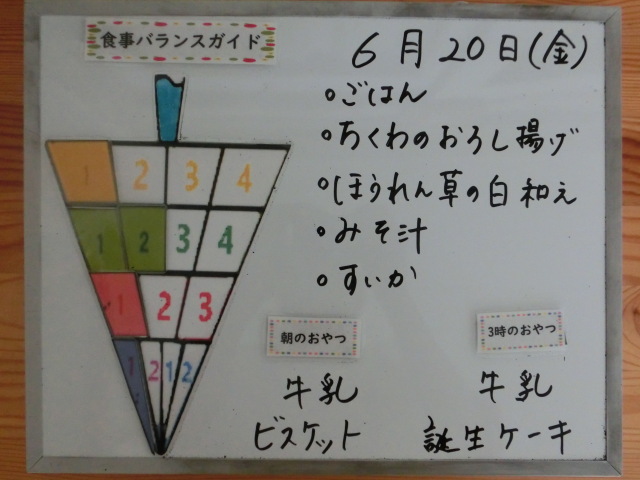 食事バランスガイド
6月20日(金)
・ごはん
・ちくわのおろし揚げ
・ほうれん草の白和え
・みそ汁
・すいか
1 2 3 4
1 2 3 4
1 2 3
1 2 1 2
朝のおやつ
牛乳
ビスケット
3時のおやつ
牛乳
誕生ケーキ